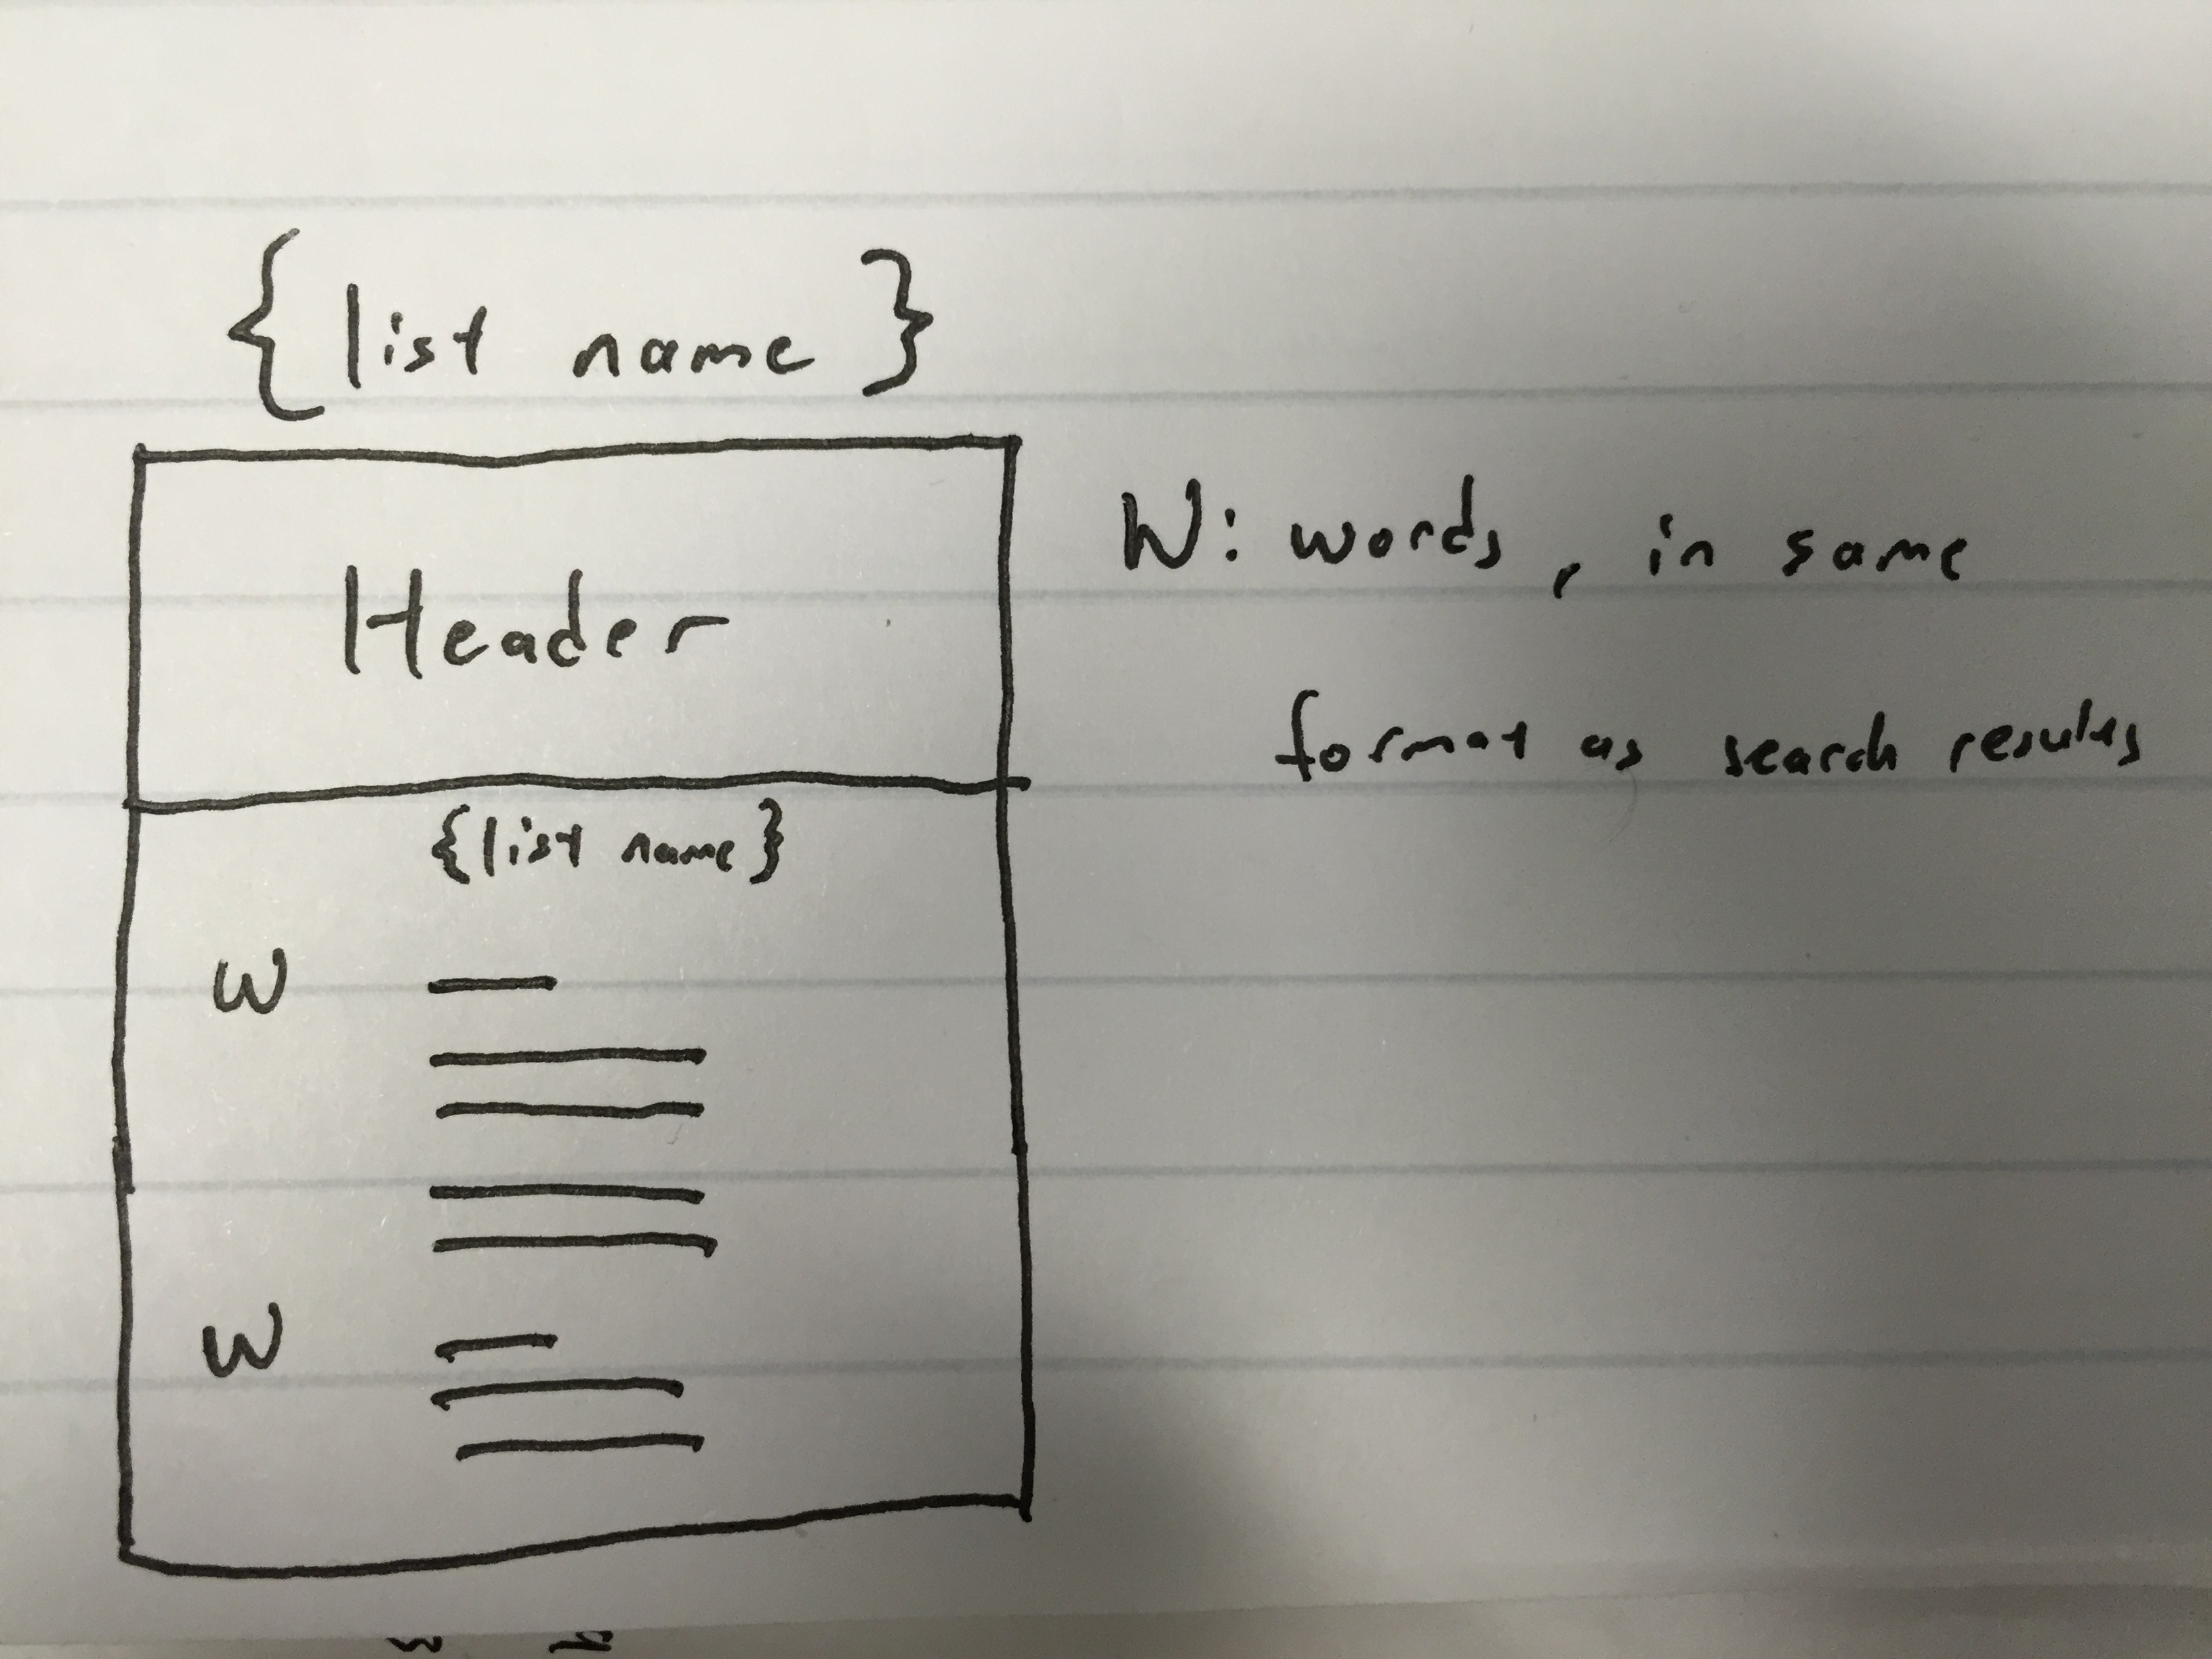 {list name}
Header
{list name}
W
W
W: words, in same
format as search results